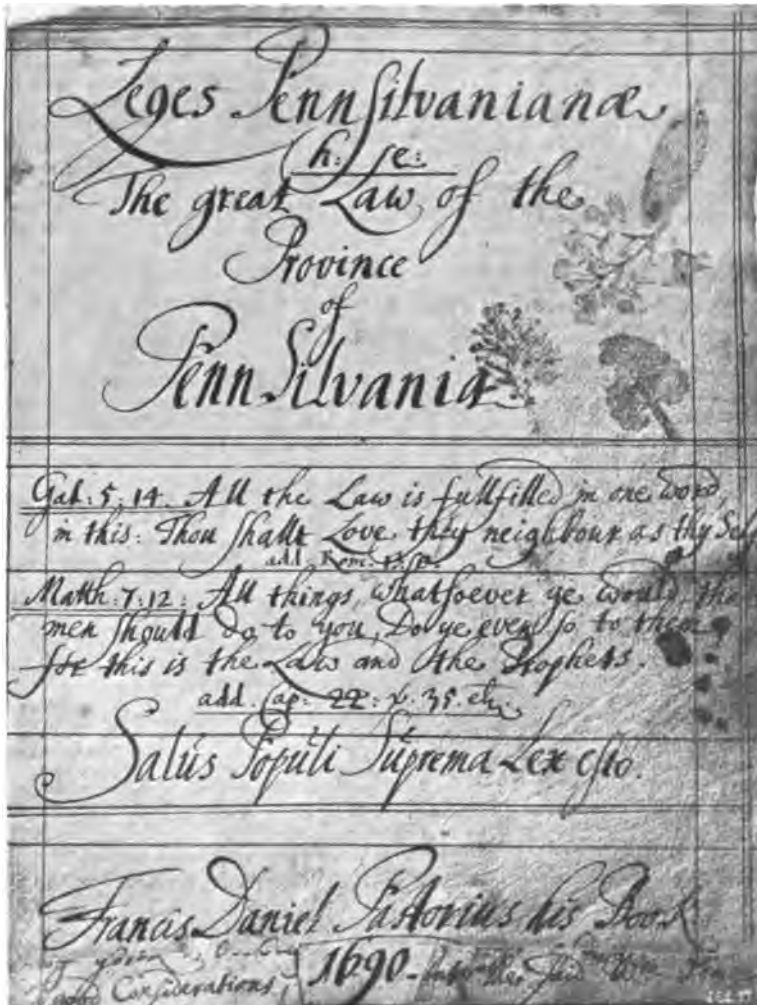 Leges PennSilvanianæ
h: se:
The great Law of the
Province
of
PennSilvania.
Gal: 5:14. All the Law is fullfilled in one word,
in this: Thou shalt Love they neighbour as thy Self
add Rom:
Matth: 7:12: All things, whatsoever ye would, tha
men should do to you, Do ye even so to them
for this is the Law and the Prophets.
add. Cap: 22: v. 35. etc.
Salus Populi Suprema Lex esto.
Francis Daniel Pastorius his Book
1690
good Considerations, the said